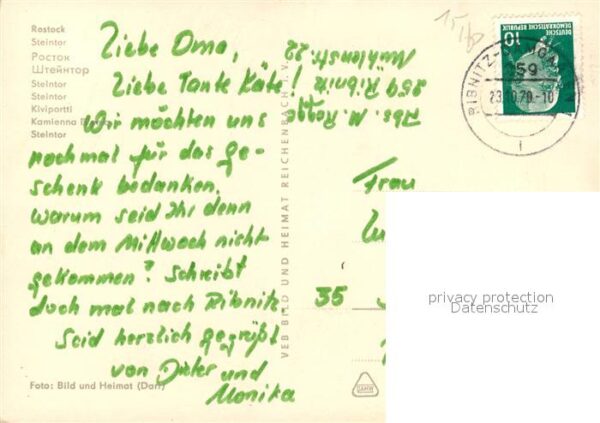 Rostock
Steintor
Росток
Штейнтор
Steintor
Steintor
Kiviportti
Kamienna
Steintor
Liebe Oma,
Liebe Tante Käte!
Wir möchten uns
nochmal für das ge-
schenk bedanken.
Warum seid Ihr denn
an dem Mittwoch nicht
gekommen? Schreibt
doch mal nach Ribnitz
Seid herzlich gegrüßt
von Dieter und
Monika
Foto: Bild und Heimat (Darr)
VEB BILD UND HEIMAT REICHENBACH I. V.
Abs. M.
259 Ribnitz
Mühlenstr. 22
15/
DEUTSCHE
DEMOKRATISCHE
REPUBLIK
10
RIBNITZ-
259
23.10.70-10
Frau
35
privacy protection
Datenschutz